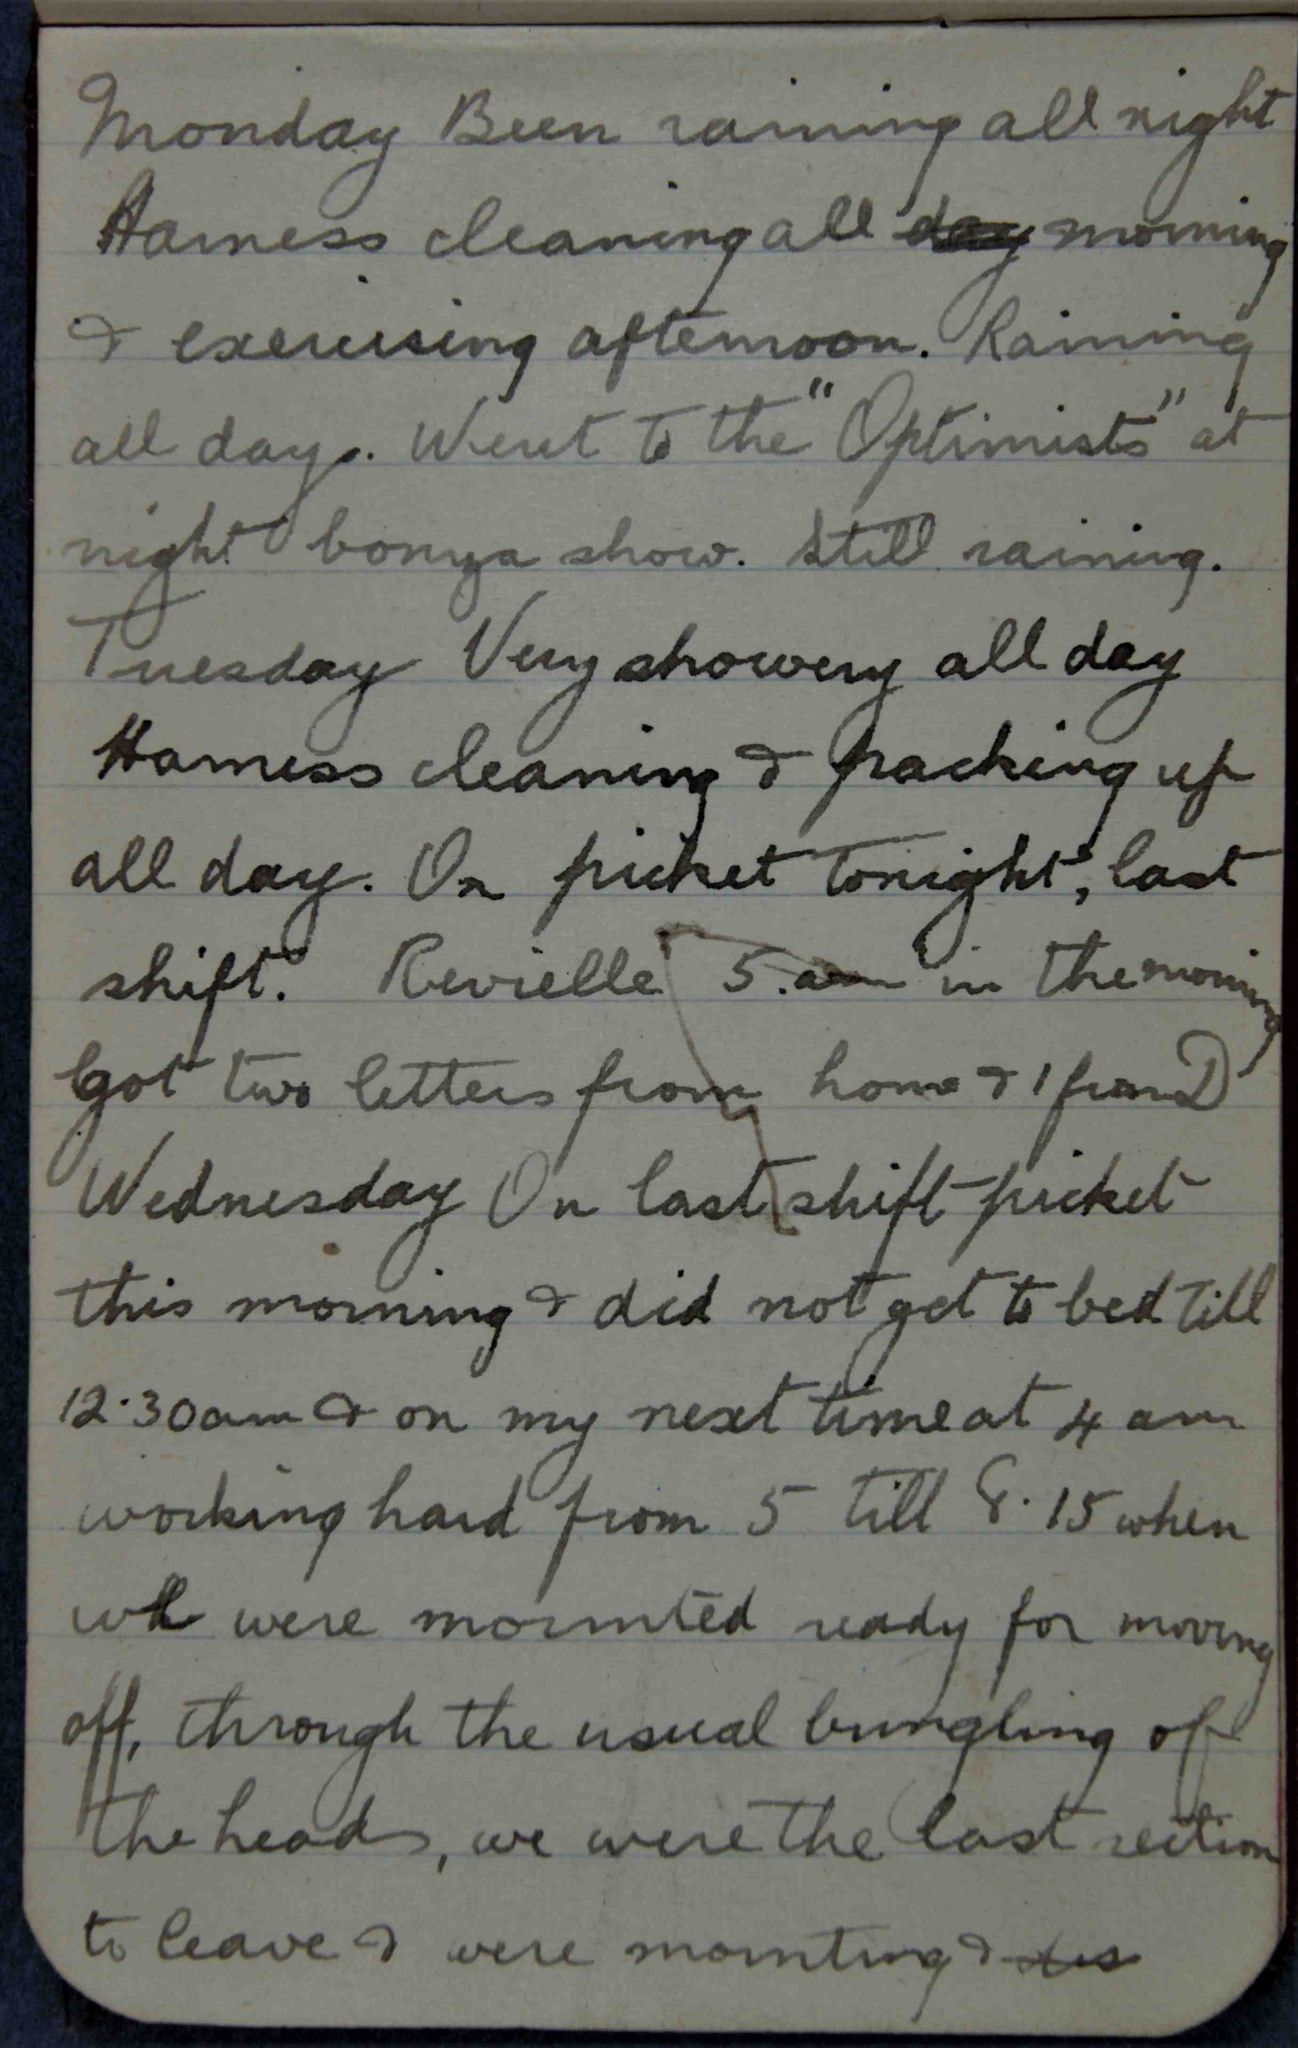 Monday Been raining all night
Harness cleaning all day morning
& exercising afternoon. Raining
all day. Went to the "Optimists" at
night bonza show. Still raining.
Tuesday Very showery all day
Harness cleaning & packing up
all day. On picket tonight, last
shift. Revielle 5.am in the morning
Got two letters from home & 1 from D
Wednesday On last shift picket
this morning & did not get to bed till
12.30am & on my next time at 4 am
working hard from 5 till 8.15 when
we were mounted ready for moving
off, through the usual bungling of
the heads, we were the last section
to leave & were mounting & dis